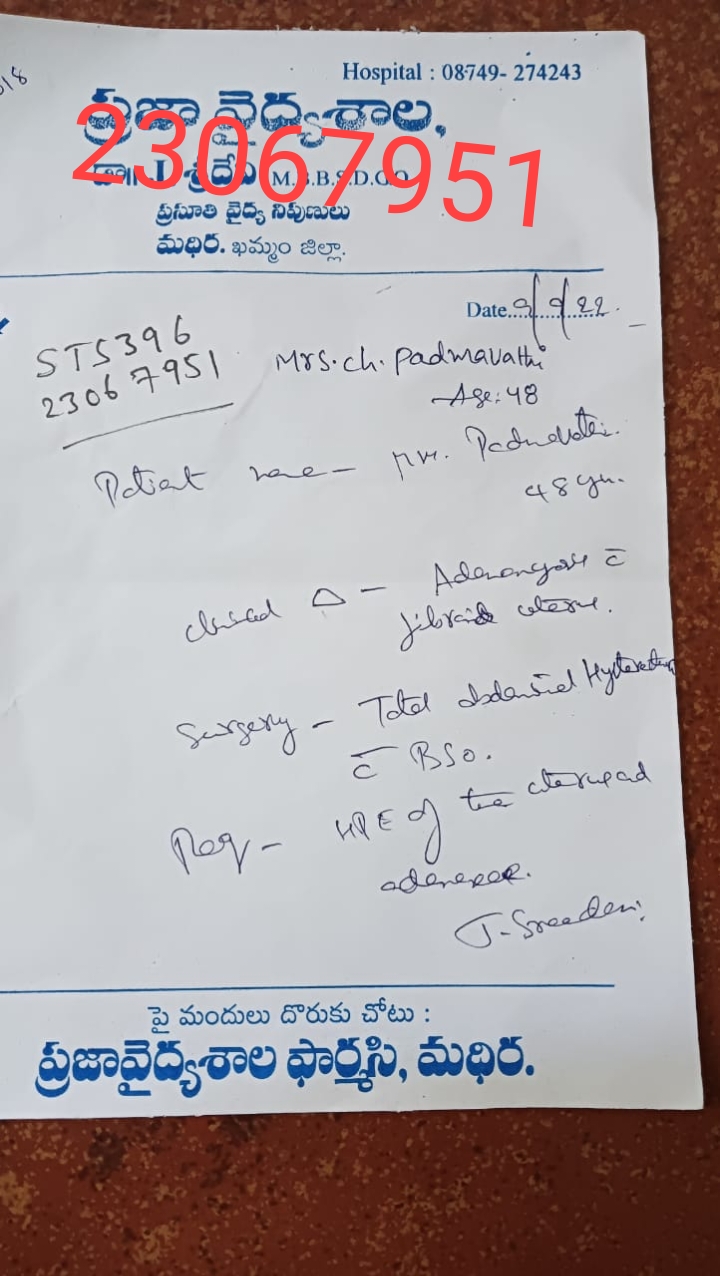 018
Hospital : 08749- 274243
ప్రజా వైద్యశాల,
23067951
డా॥ J. శ్రీదేవి M.B.B.S.D.G.O
ప్రసూతి వైద్య నిపుణులు
మధిర. ఖమ్మం జిల్లా.
Date 9/9/22.
STS396
23067951
Mrs. ch. Padmavathi
Age: 48
Patient name - Mrs. Padmavathi.
48 yrs.
Δ - c̄
fibroid uterus.
Surgery - Total abdominal Hysterectomy
c̄ BSO.
Req - HPE of the uterus and
J. Sreedevi
పై మందులు దొరుకు చోటు :
ప్రజావైద్యశాల ఫార్మసి, మధిర.